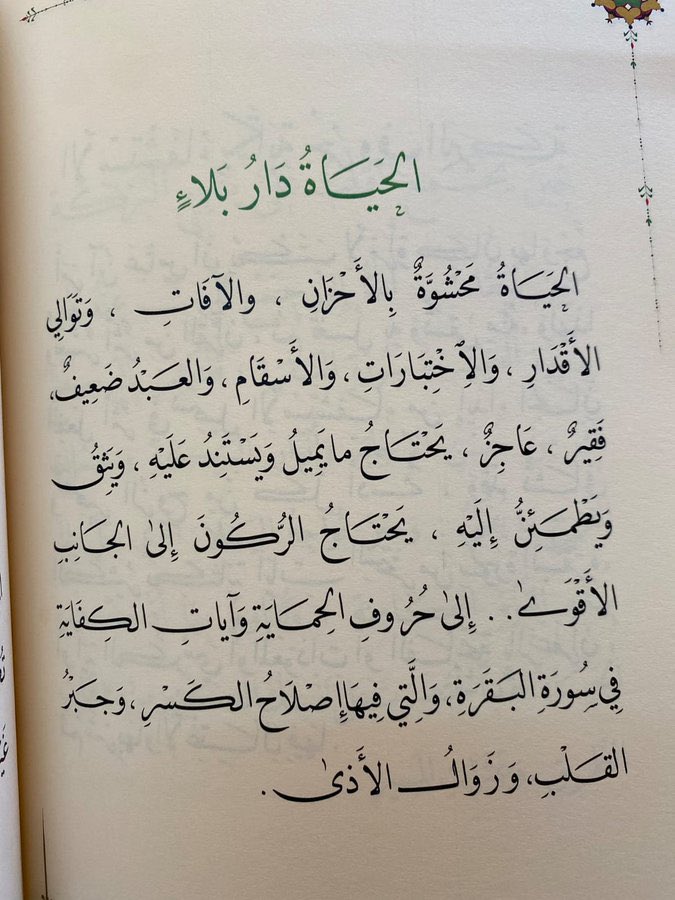 الحَيَاةُ دَارُ بَلاءٍ
الحَيَاةُ مَحْشُوَّةٌ بِالأَحْزَانِ ، والآفَاتِ ، وَتَوَالِي
الأَقْدَارِ ، وَالِاخْتِبَارَاتِ ، وَالأَسْقَامِ ، وَالعَبْدُ ضَعِيفٌ ،
فَقِيرٌ ، عَاجِزٌ ، يَحْتَاجُ ما يَمِيلُ وَيَسْتَنِدُ عَلَيْهِ ، وَيَثِقُ
وَيَطْمَئِنُّ إِلَيْهِ ، يَحْتَاجُ الرُّكُونَ إِلىٰ الجَانِبِ
الأَقْوَىٰ .. إِلىٰ حُرُوفِ الحِمَايَةِ وَآيَاتِ الكِفَايَةِ
فِي سُورَةِ البَقَرَةِ ، وَالَّتِي فِيهَا إِصْلَاحُ الكَسْرِ ، وَجَبْرُ
القَلْبِ ، وَزَوَالُ الأَذىٰ .